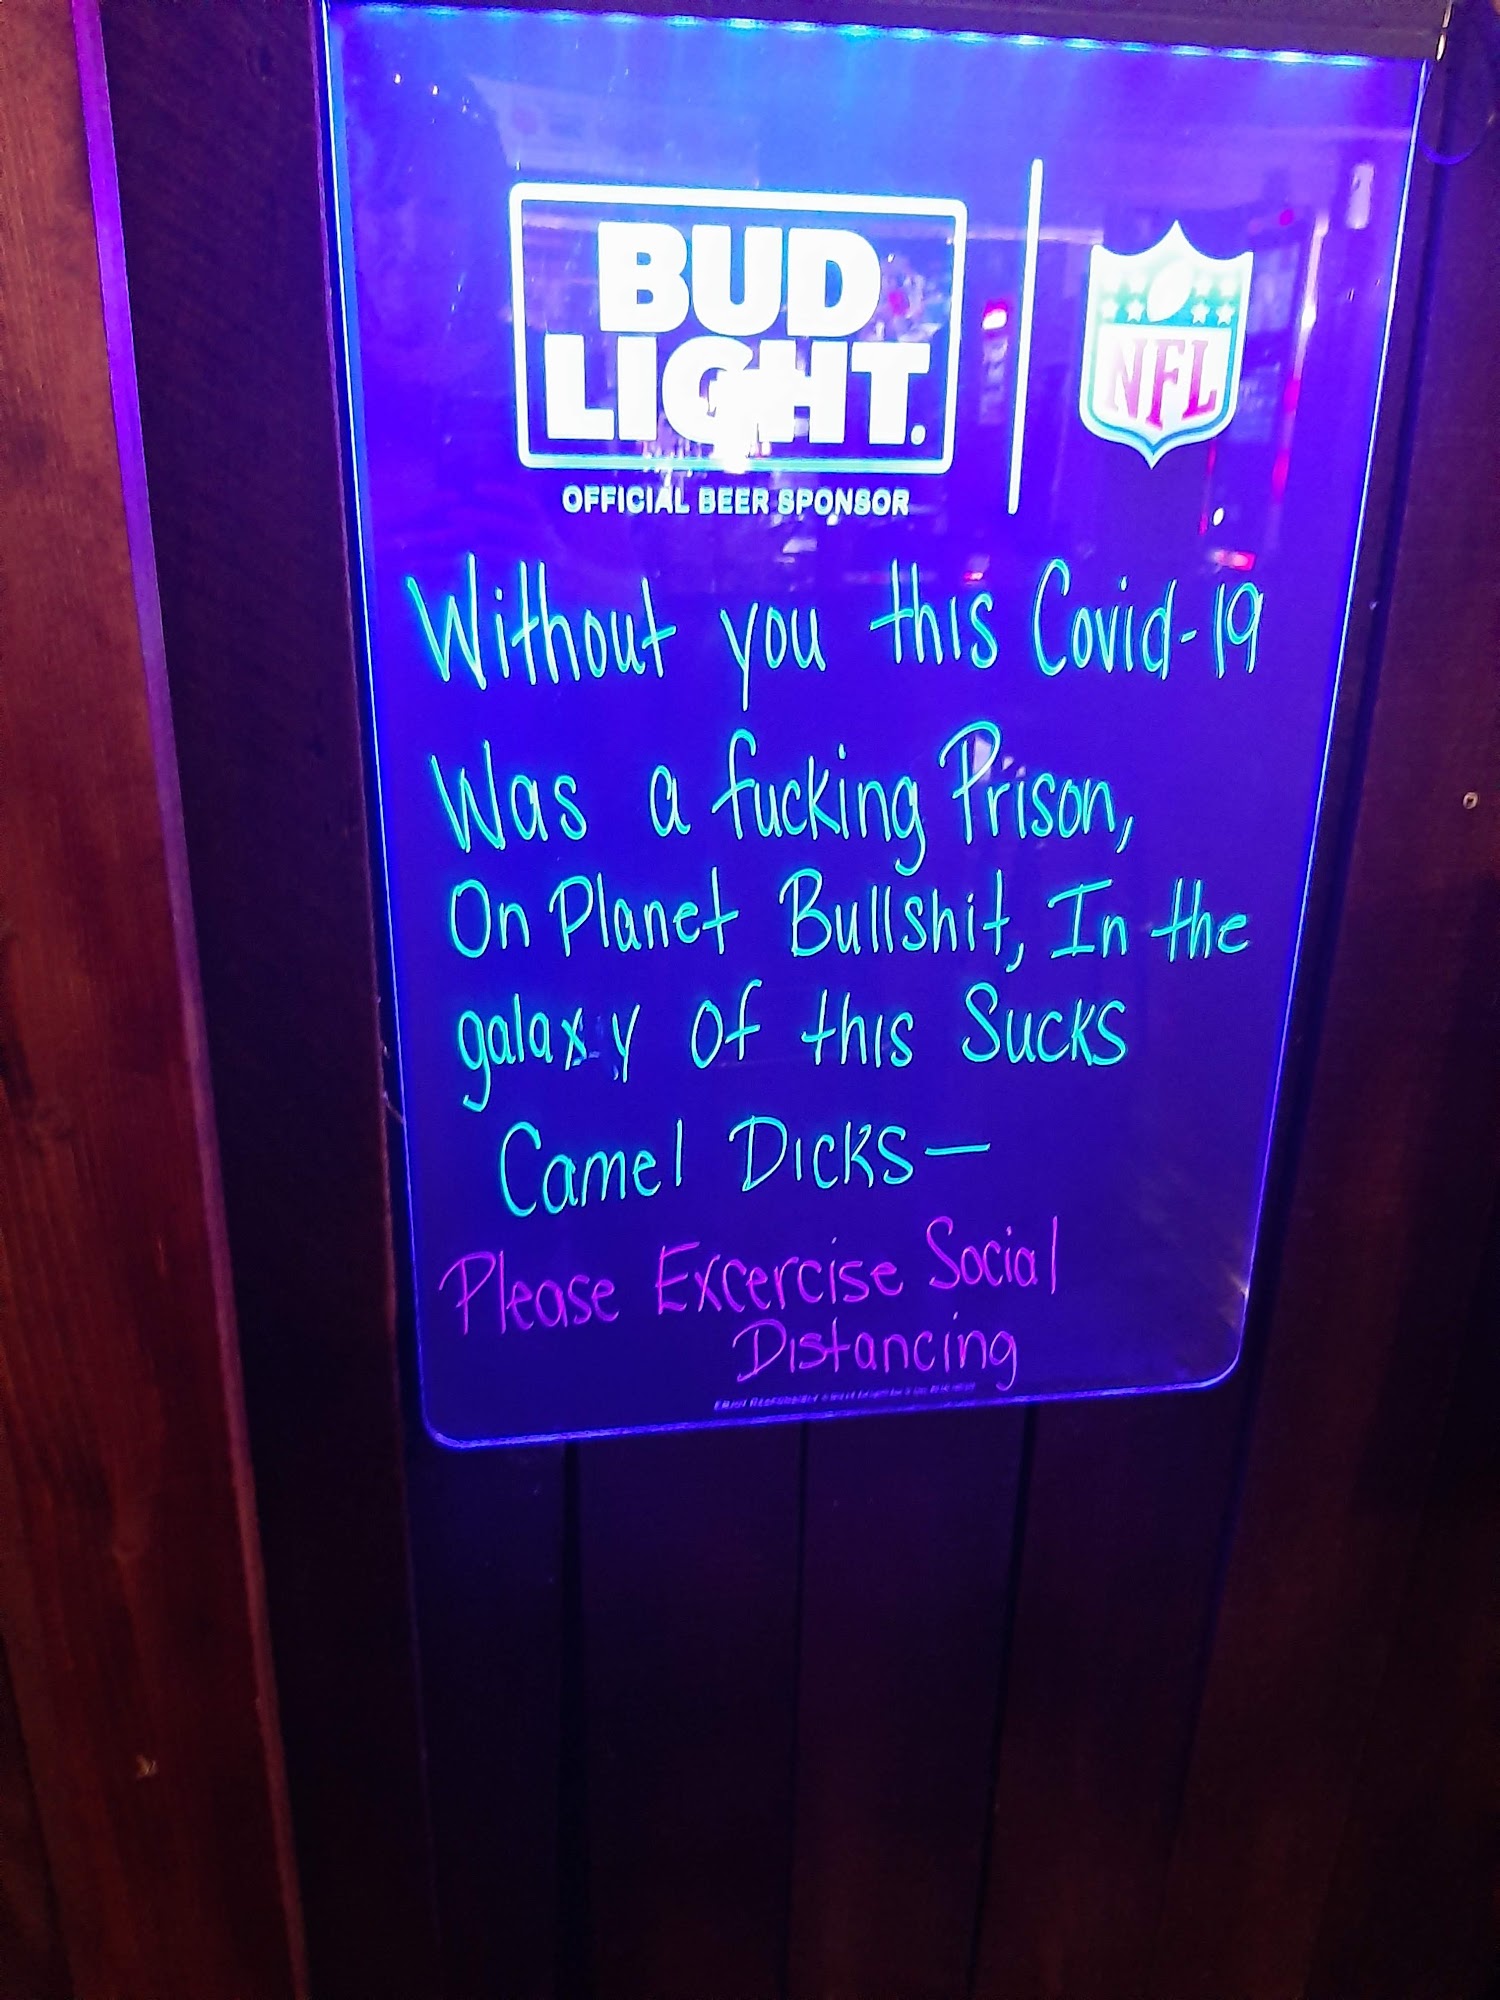 BUD
LIGHT.
OFFICIAL BEER SPONSOR
NFL
Without you this Covid-19
Was a fucking Prison,
On Planet Bullshit, In the
galaxy of this Sucks
Camel Dicks—
Please Excercise Social
Distancing
ENJOY RESPONSIBLY